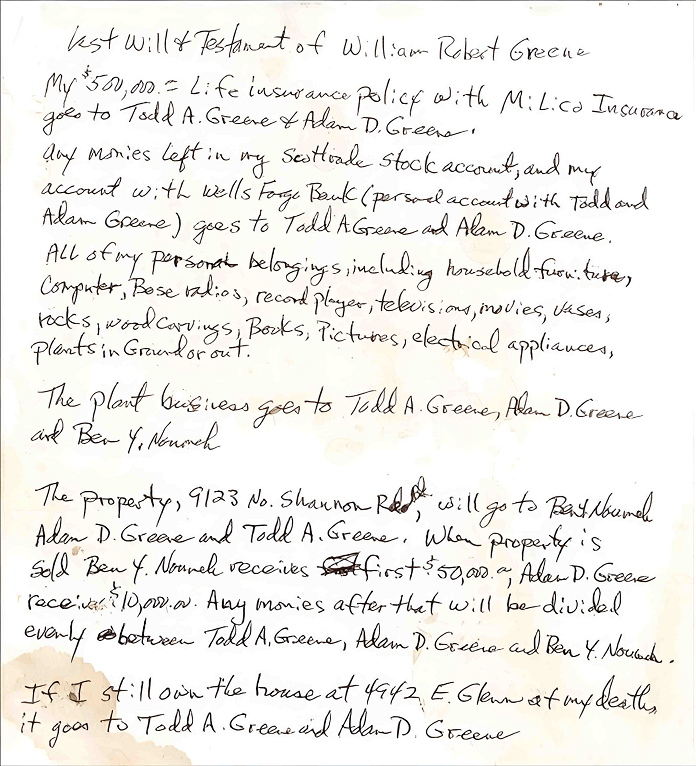 Last Will & Testament of William Robert Greene
My $500,000.= Life insurance policy with MiLico Insurance
goes to Todd A. Greene & Adam D. Greene.
Any monies left in my Scottrade Stock account, and my
account with Wells Fargo Bank (personal account with Todd and
Adam Greene) goes to Todd A Greene and Adam D. Greene.
ALL of my personal belongings, including household furniture,
Computer, Bose radios, record player, televisions, movies, vases,
rocks, wood carvings, Books, Pictures, electrical appliances,
plants in Ground or out.
The plant business goes to Todd A. Greene, Adam D. Greene
and Ben Y.
The property, 9123 No. Shannon Rd, will go to Ben Y.
Adam D. Greene and Todd A. Greene. When property is
sold Ben Y. receives first $50,000.00, Adam D. Greene
receives $10,000.00. Any monies after that will be divided
evenly between Todd A. Greene, Adam D. Greene and Ben Y.
If I still own the house at 4942 E. Glenn at my death,
it goes to Todd A. Greene and Adam D. Greene